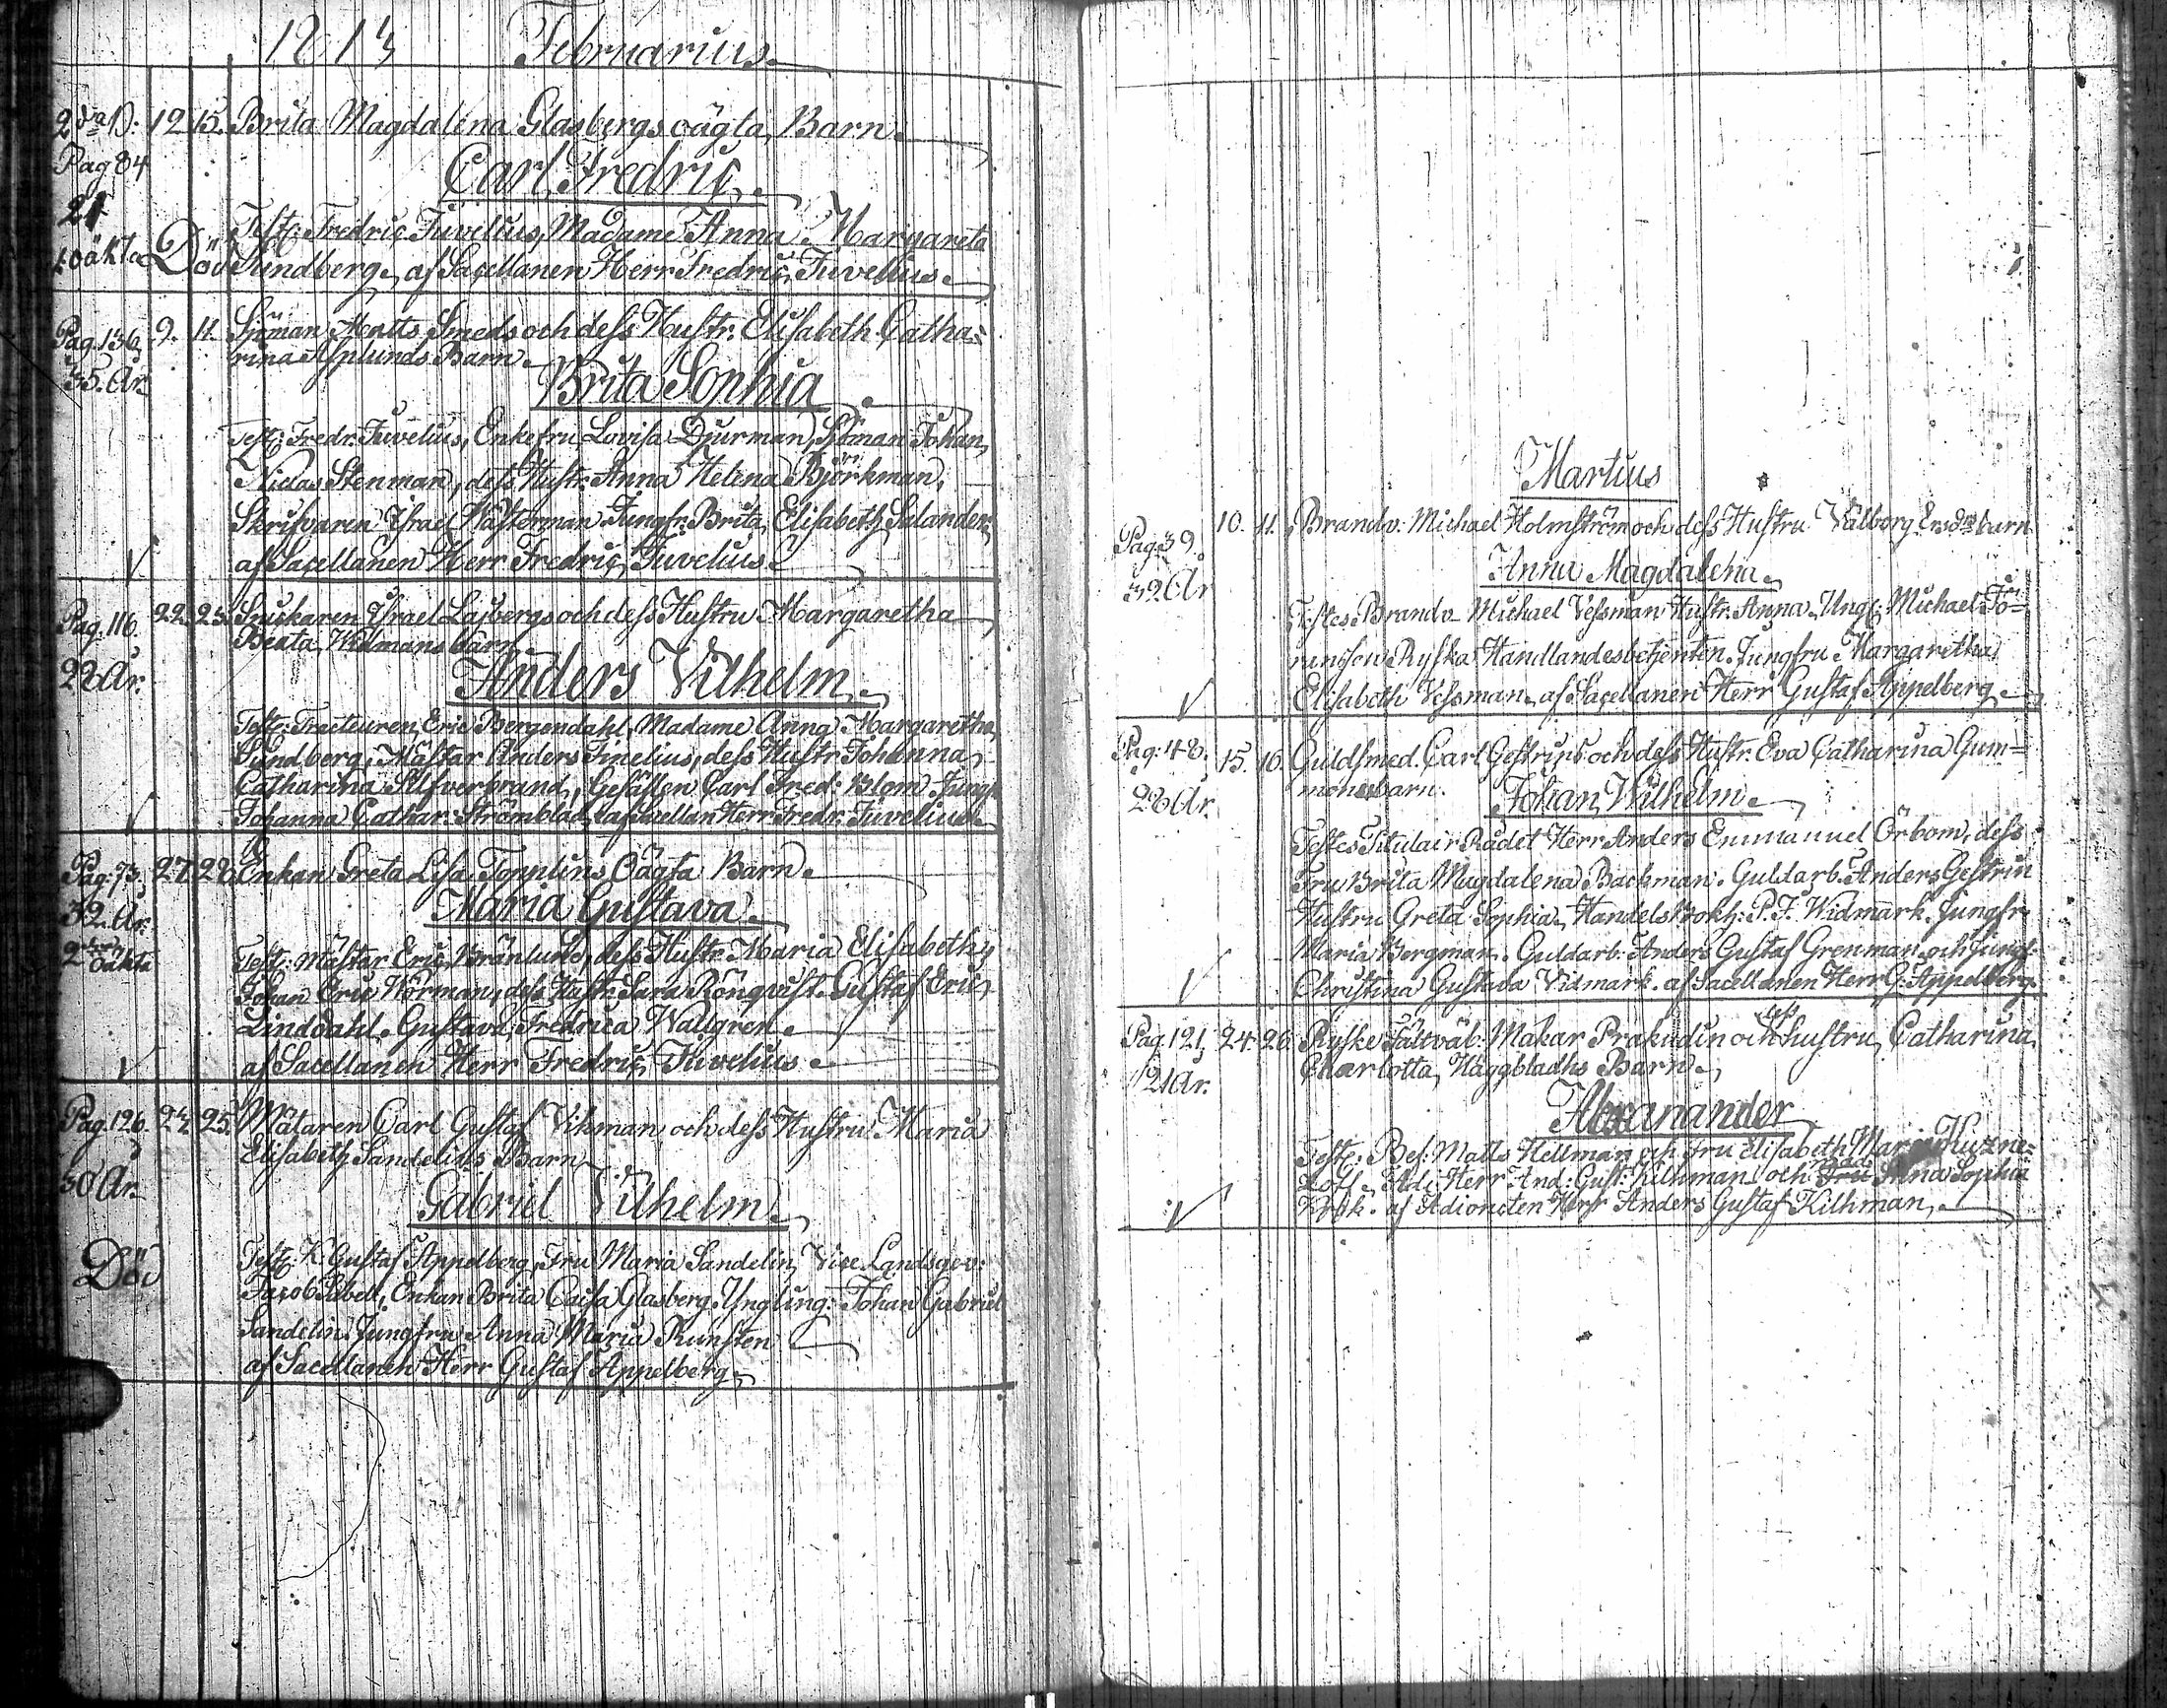 1813 Februarius
2dra D: 12. 15. Brita Magdalena Glasbergs oägta Barn
Pag 84 Carl Fredric
21
Test: Fredric Juvelius, Madame Anna Margareta
oäkta Död Sundberg, af Sacellanen Herr Fredric Juvelius
Pag. 136, 9. 11. Sjöman Matts Smeds och dess Hustr. Elisabeth Catha=
rina Asplunds Barn
35. År. Brita Sophia
Test: Fredr. Juvelius, Enkefru Lovisa Djurman, Sjöman Johan
Niclas Stenman, dess Hustr. Anna Helena Björkman,
Skrifvaren Israel Wästerman Jungfr. Brita Elisabeth Salander
af Sacellanen Herr Fredric Juvelius
Pag. 116. 22. 23. Snickaren Israel Lasbergs och dess Hustru Margaretha
Beata Widmans barn
28 År. Anders Vilhelm
Test: Tracteuren Eric Bergendahl, Madame Anna Margaretha
Sundberg, Mästar Anders Finelius, dess Hustr. Johanna
Catharina Silfverbrand, Gesällen Carl Fred: Blom. Jungf.
Johanna Cathar: Strömblad, af Sacellan Herr Fredr. Juvelius
Pag. 73, 27. 28. Enkan Greta Lisa Topplins Oägta Barn
32. År. Maria Gustava
2dra oäkta
Test: Mästar Eric Brånlund, dess Hustr. Maria Elisabeth,
Johan Eric Nörman, dess Hustr. Sara Rönqvist. Gustaf Eric
Linddahl. Gustava Fredrica Wallgren
af Sacellanen Herr Fredric Juvelius
Pag. 126. 24. 25. Mätaren Carl Gustaf Vikman och dess Hustru Maria
Elisabeth Sandelins Barn
30 År. Gabriel Vilhelm
Död Test: K. Gustaf Appelberg, Fru Maria Sandelin, Vice Landsgev:
Jacob Enkan Brita Caisa Glasberg. Yngling: Johan Gabriel
Sandelin. Jungfru Anna Maria Runsten
af Sacellanen Herr Gustaf Appelberg
Martius
Pag. 39. 10. 11. Brandv. Michael Holmström och dess Hustru Valborg barn
32 År Anna Magdalena
Testes Brandv. Michael Vessman Hustr. Anna. Ungk: Michael
Ryska Handlandesbetjenten. Jungfru Margaretha
Elisabeth Vessman. af Sacellanen Herr Gustaf Appelberg
Pag. 48. 15. 16. Guldsmed. Carl Gestrins och dess Hustr. Eva Catharina Gum=
barn.
28 År. Johan Wilhelm
Testes Titulair Rådet Herr Anders Emmanuel Örbom, dess
Fru Brita Magdalena Backman. Guldarb. Anders Gestrin
Hustru Greta Sophia, Handels Bokh: P. J. Widmark. Jungfr.
Maria Bergman. Guldarb. Anders Gustaf Grenman och Jungf:
Christina Gustava Vidmark. af Sacellanen Herr G: Appelberg.
Pag 121, 24. 26. Ryske Fältväb: Makar Prakudin och dess hustru Catharina
Charlotta Häggbladhs Barn
21 År. Alexanander
Test: Bef: Matts Hellman och Fru Elisabeth Maria Kuzne=
zoff. Adj: Herr And: Gust: Kilhman och Fru Mad. Anna Sophia
Krok. af Adioncten Herr Anders Gustaf Kilhman